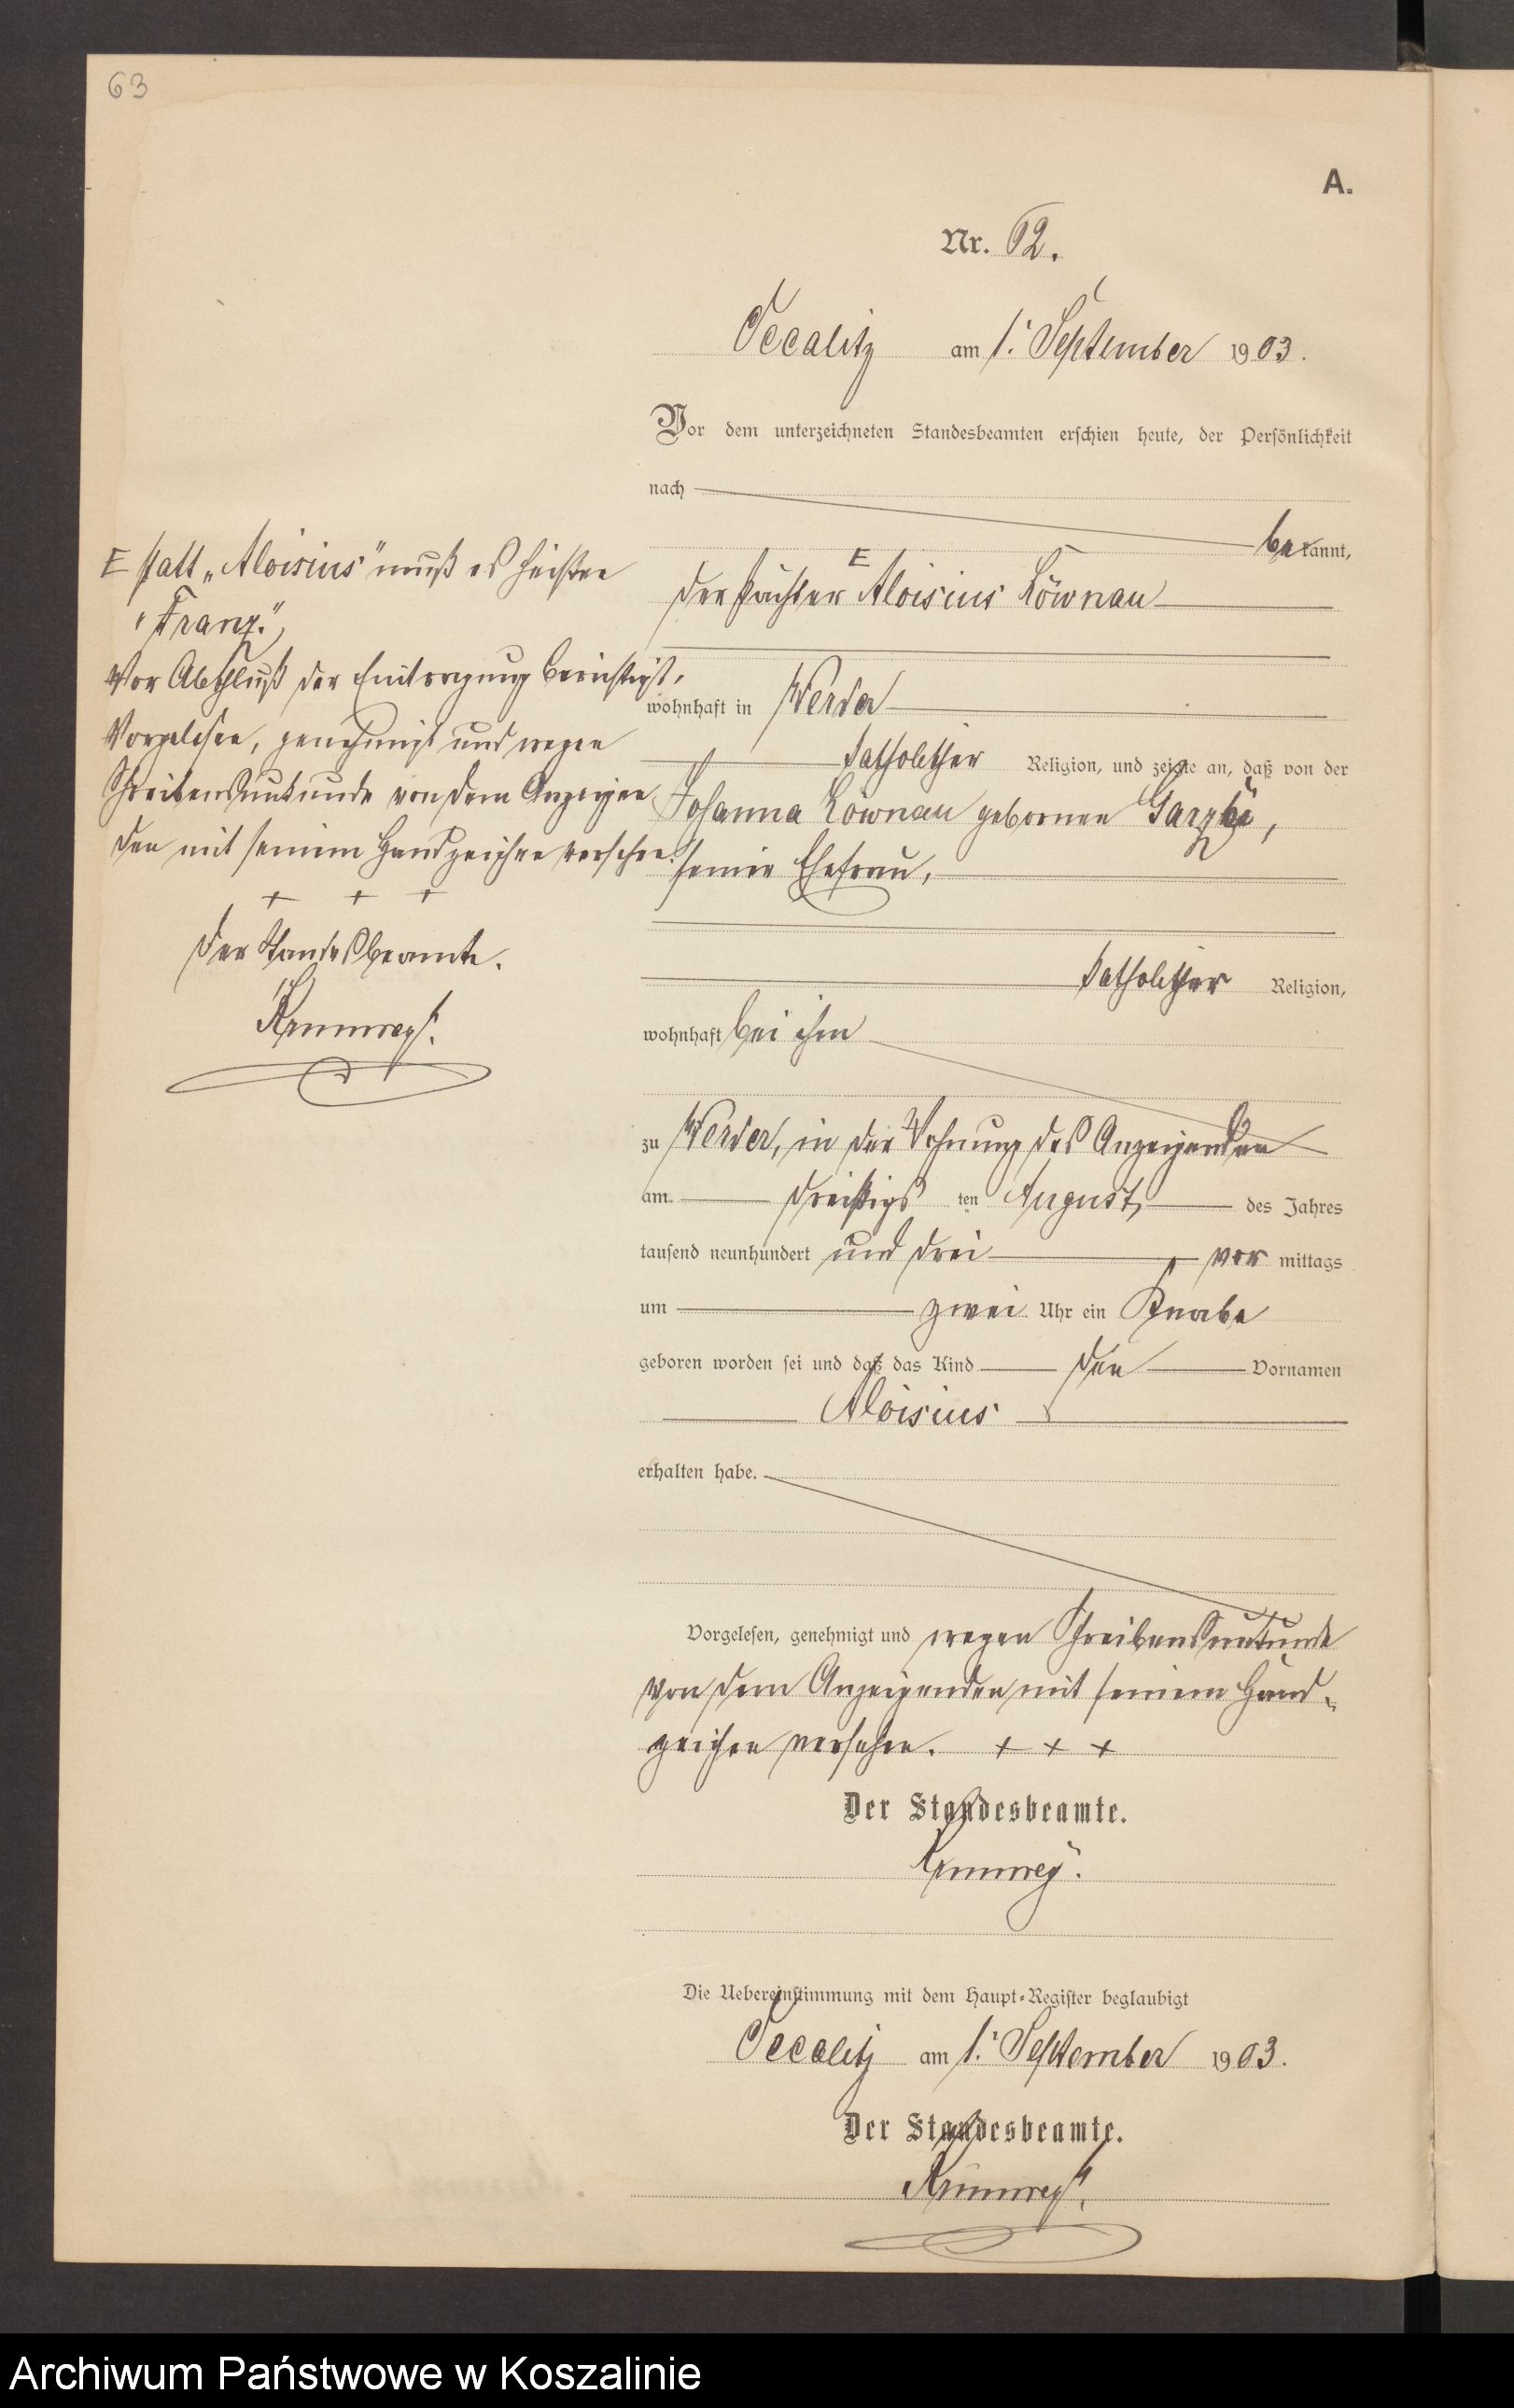 63
A.
Nr. 62.
am 1. September 1903.
Vor dem unterzeichneten Standesbeamten erschien heute, der Persönlichkeit
nach
bekannt,
der Pächter Aloisius Löwnau
wohnhaft in Werder
katholischer Religion, und zeigte an, daß von der
Johanna Löwnau gebornen
seiner Ehefrau,
katholischer Religion,
wohnhaft bei ihm
zu Werder, in der Wohnung des Anzeigenden
am dreißigs ten August des Jahres
tausend neunhundert und drei vor mittags
um zwei Uhr ein Knabe
geboren worden sei und daß das Kind den Vornamen
Aloisius
erhalten habe.
Vorgelesen, genehmigt und wegen Schreibensunkunde
von dem Anzeigenden mit seinem Hand-
zeichen versehen. + + +
Der Standesbeamte.
Die Uebereinstimmung mit dem Haupt-Register beglaubigt
am 1. September 1903.
Der Standesbeamte.
statt „Aloisius" muß es heißen
"Franz."
Vor Abschluß der Eintragung berichtigt,
Vorgelesen, genehmigt und wegen
Schreibensunkunde von dem Anzeigen
den mit seinem Handzeichen versehen.
+ + +
Der Standesbeamte.
Archiwum Państwowe w Koszalinie